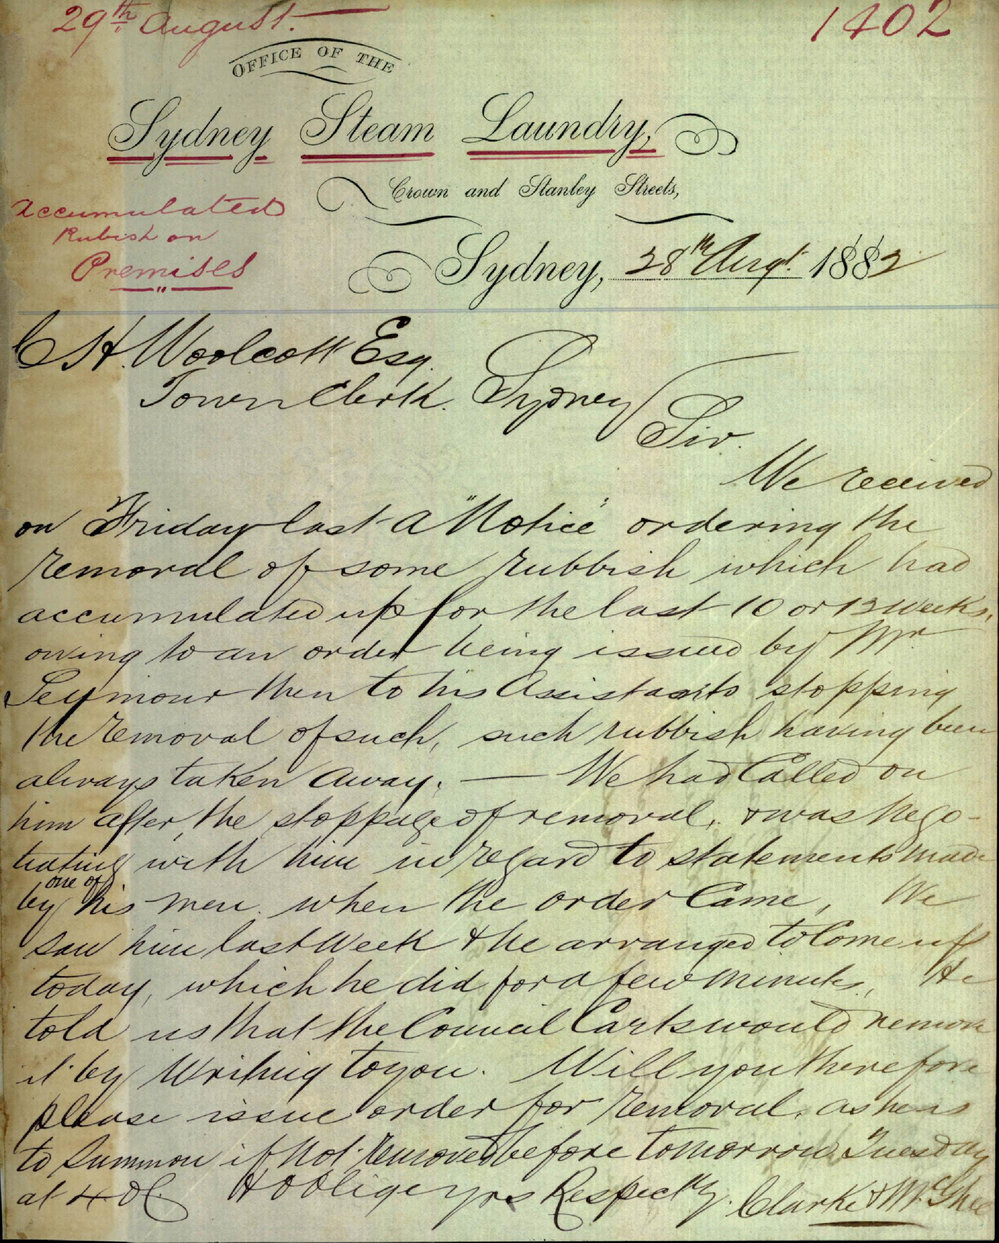 29th August.
1402
OFFICE OF THE
Sydney Steam Laundry,
Crown and Stanley Streets,
Accumulated
Rubish on
Premises
Sydney, 28th Augt. 1882
C H. Woolcott Esq.
Town Clerk. Sydney
Sir.
We received
on Friday last a "Notice" ordering the
removal of some rubbish which had
accumulated up for the last 10 or 12 weeks.
owing to an order being issued by Mr
Seymour then to his Assistants stopping
the removal of such, such rubbish having been
always taken away. — We had Called on
him after the stoppage of removal, & was nego-
tiating with him in regard to statements made
by one of his men, when the order Came, We
saw him last week & he arranged to Come up
today, which he did for a few minutes, He
told us that the Council Carts would remove
it by Writing to you. Will you therefore
please issue order for removal, as he is
to Summon if not removed before tomorrow Tuesday
at 4 OC. & Oblige yrs Respectly. Clarke & McGhee